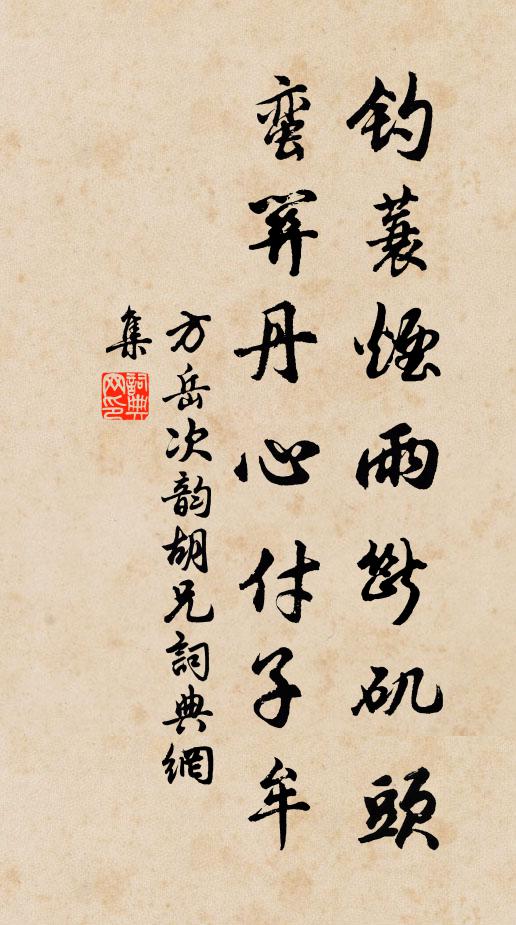 钓蓑煙雨断矶頭
蛮丹心付子牟
方岳次韵胡兄詞典網
集
詞典网印